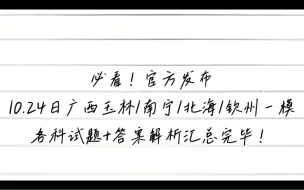 必看！官方发布
10.24日广西玉林/南宁/北海/钦州一模
各科试题+答案解析汇总完毕！